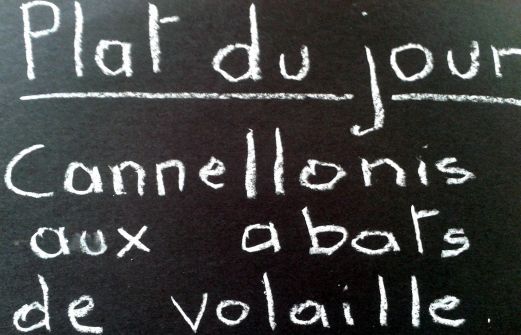 Plat du jour
Cannellonis
aux abats
de volaille.